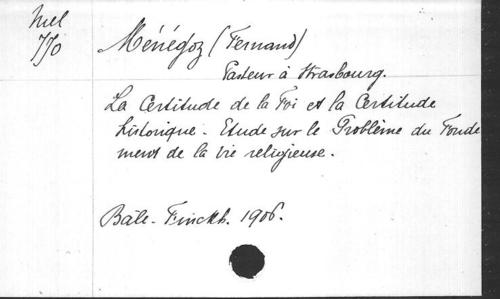 Mel
770
Ménégoz (Fernand)
Pasteur à Strasbourg.
La Certitude de la Foi et la Certitude
historique - Etude sur le Problème du Fonde
ment de la vie religieuse.
Bâle - Finckh. 1906.